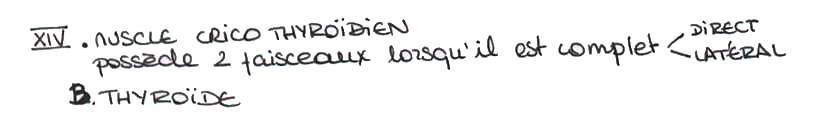 XIV. MUSCLE CRICO THYROÏDIEN
possède 2 faisceaux lorsqu'il est complet < DIRECT
LATÉRAL
B. THYROÏDE